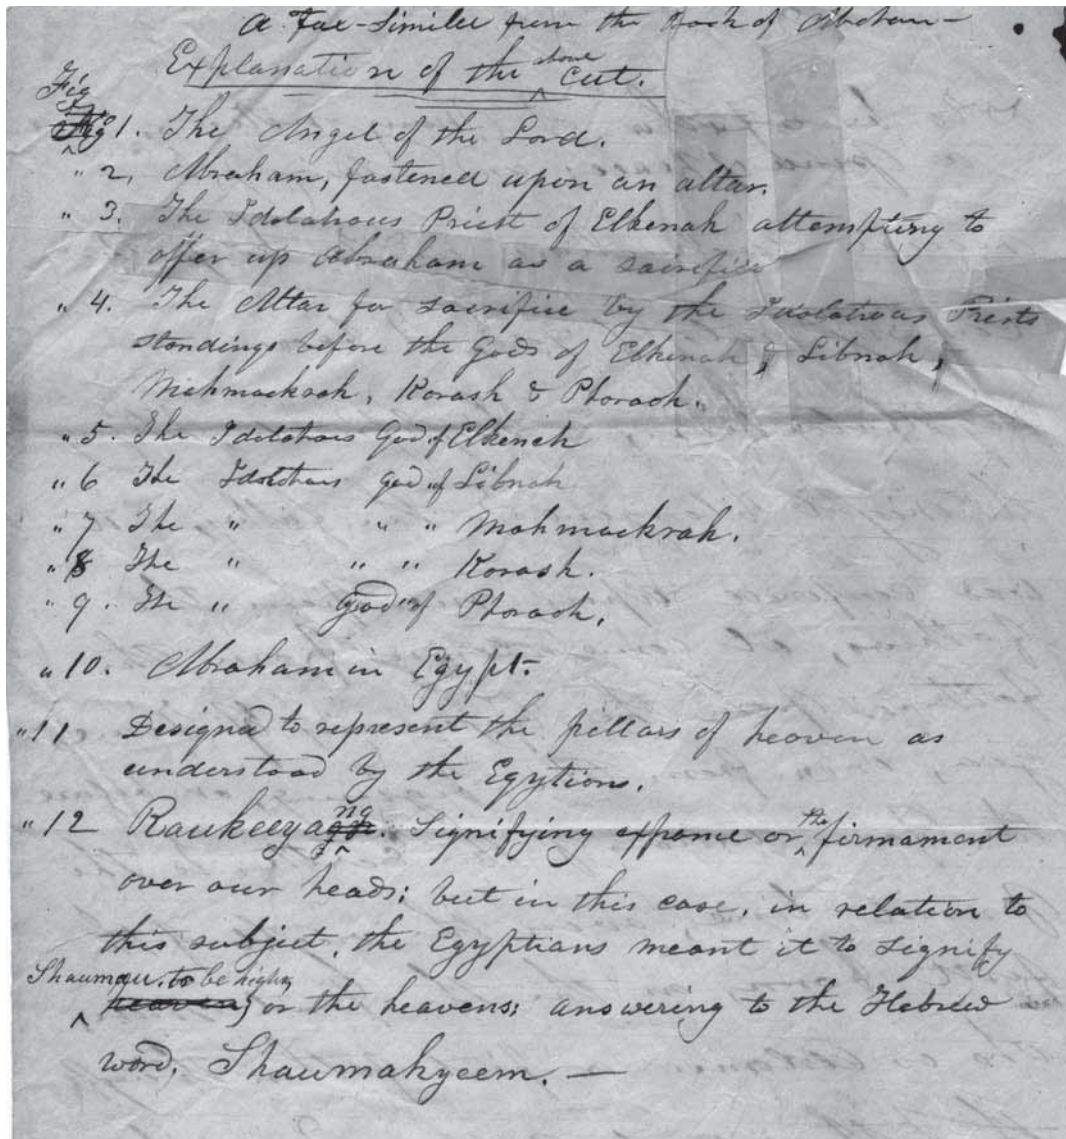 A Fac-Similee from the Book of Abraham—
Explanation of the above Cut.
Fig
Fig 1. The Angel of the Lord.
" 2, Abraham, fastened upon an altar.
" 3. The Idolatrous Priest of Elkenah attempting to
offer up Abraham as a sacrifice
" 4. The Altar for sacrifice by the Idolatrous Priests
standings before the Gods of Elkenah, Libnah,
Mahmackrah, Korash & Pharaoh.
" 5. The Idolatrous God of Elkenah
" 6 The Idolatrous god of Libnah
" 7 The " " " Mahmackrah.
" 8 The " " " Korash.
" 9. The " God of Pharaoh,
" 10. Abraham in Egypt.
" 11 Designed to represent the pillars of heaven as
understood by the Egytions.
" 12 Raukeeyang. Signifying expance or the firmament
over our heads; but in this case, in relation to
this subject, the Egyptians meant it to signify
Shaumau. to be high,
heaven, or the heavens; answering to the Hebrew
word, Shaumahyeem.—